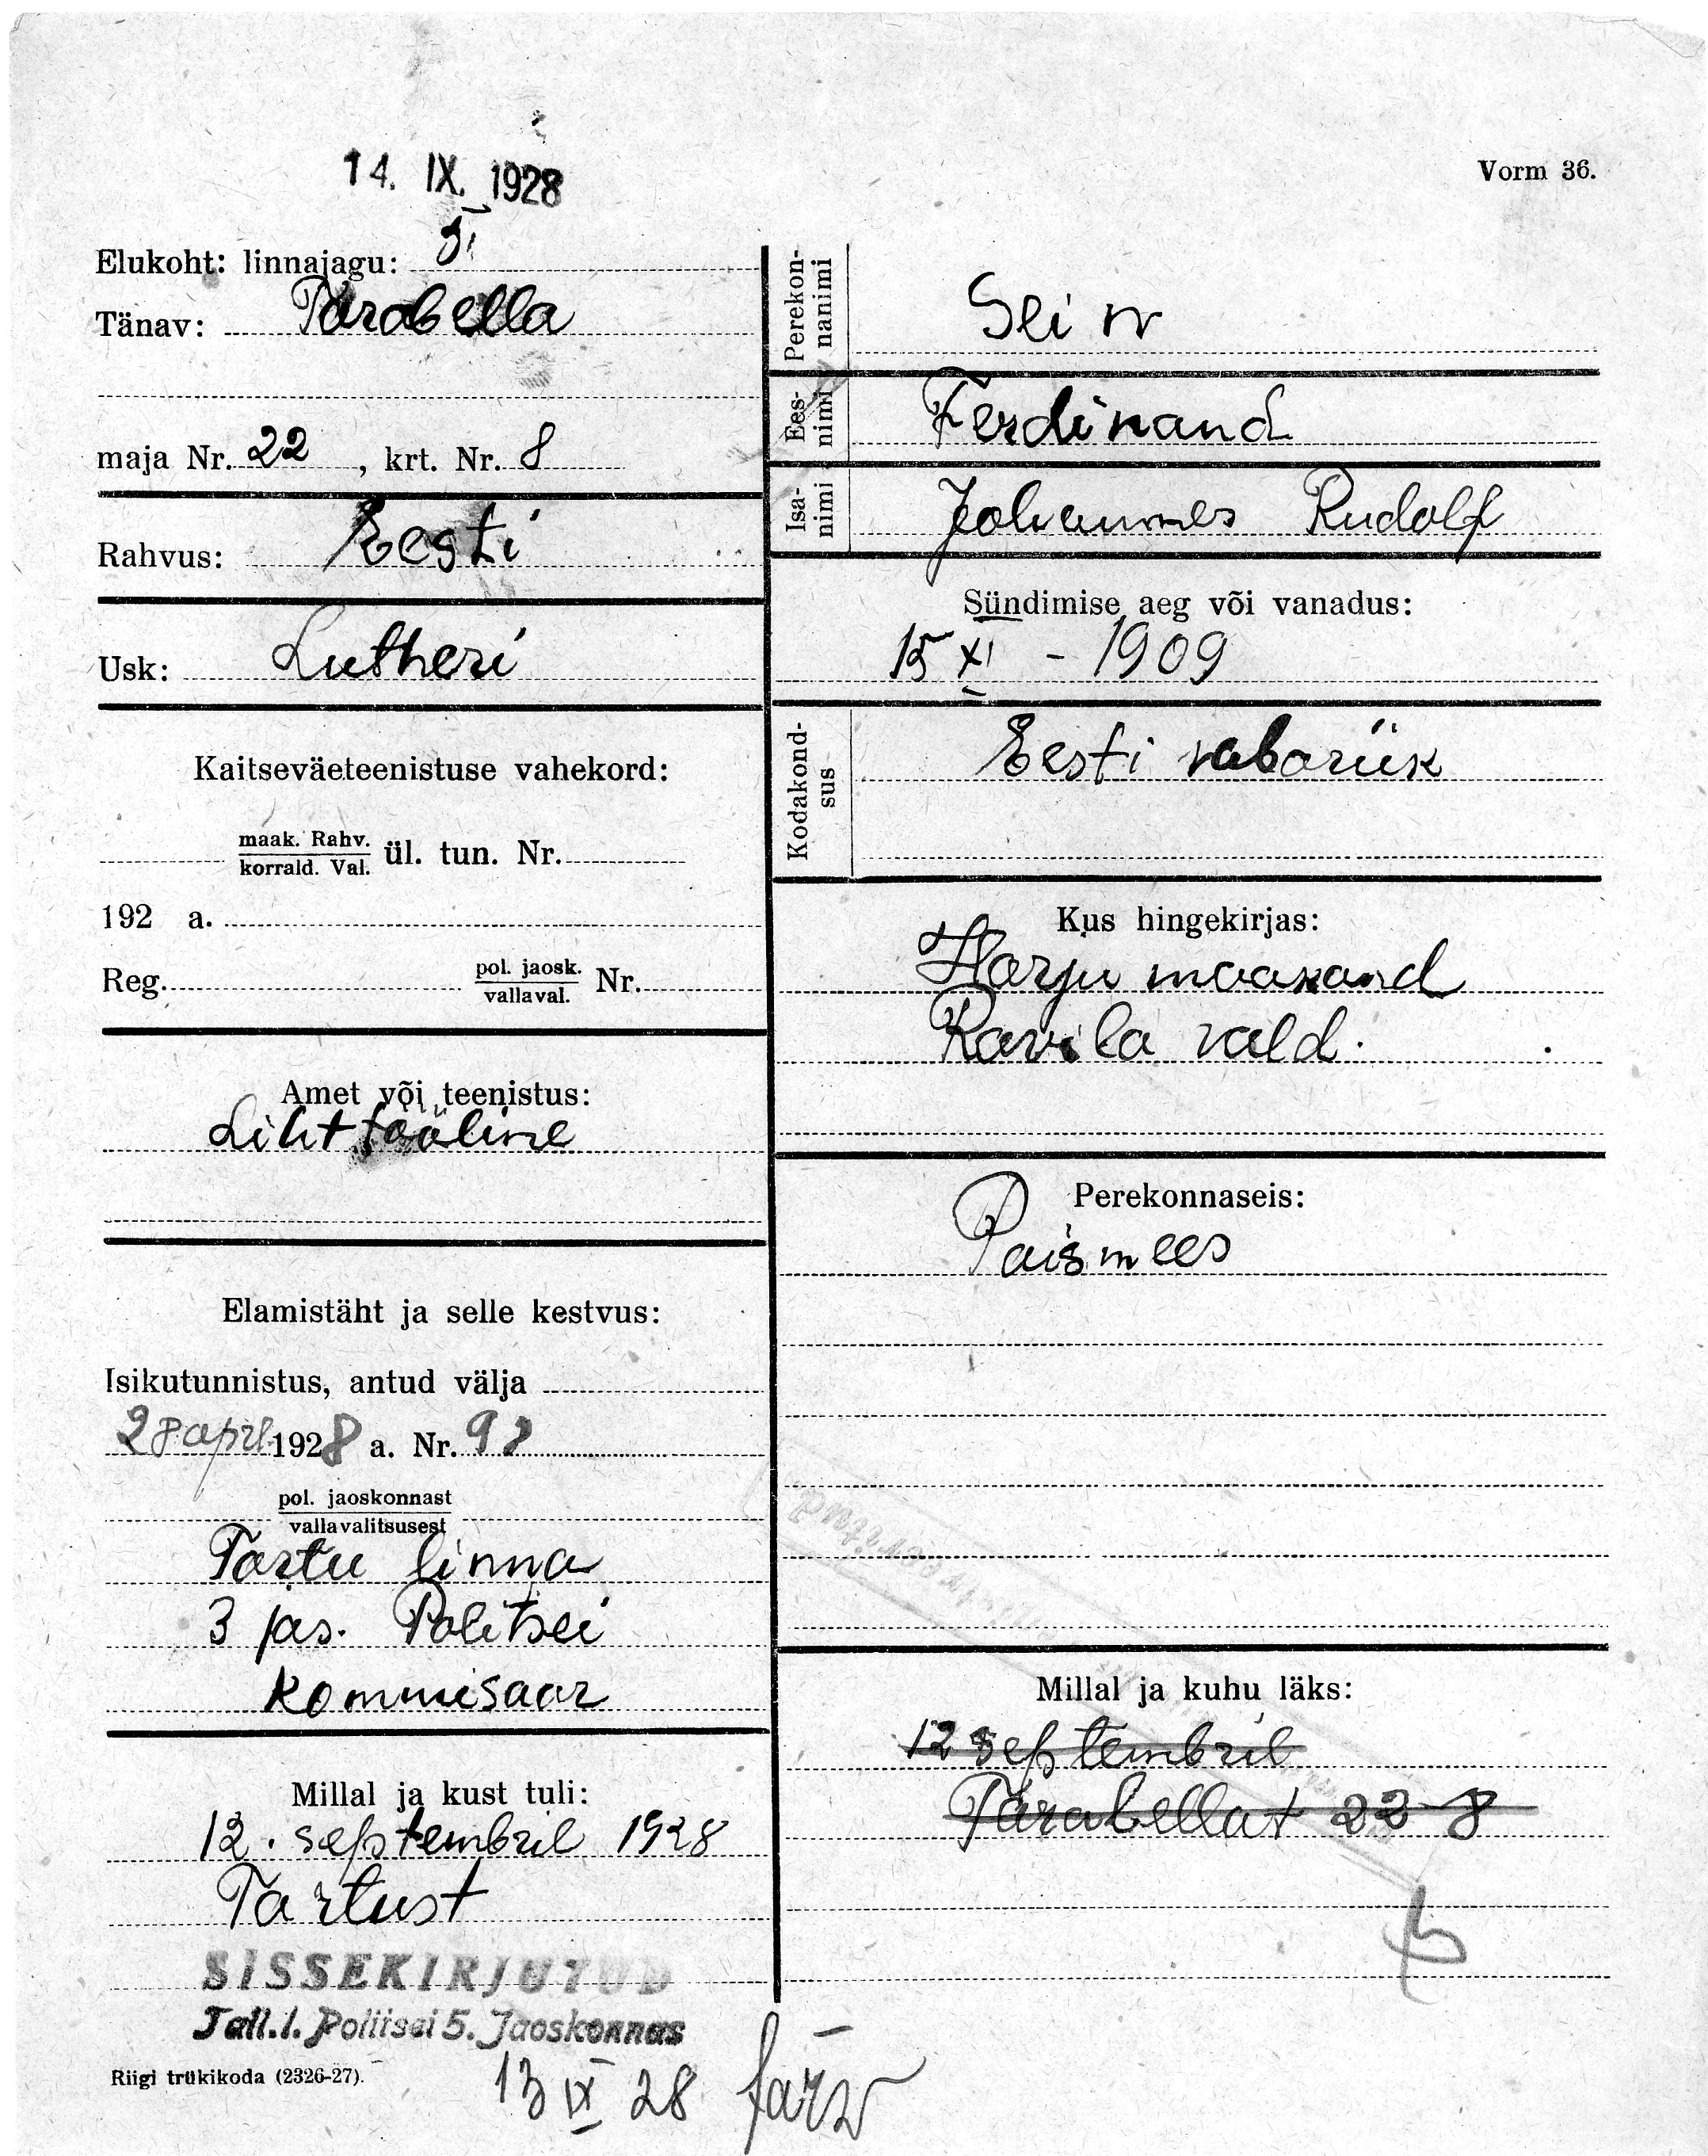 14. IX. 1928
Vorm 36.
Elukoht: linnajagu:
Tänav: Parabella
maja Nr. 22, krt. Nr. 8
Rahvus: Eesti
Usk: Lutheri
Kaitseväeteenistuse vahekord:
maak. Rahv.
korrald. Val. ül. tun. Nr.
192 a.
Reg. pol. jaosk.
vallaval. Nr.
Amet või teenistus:
Lihttööline
Elamistäht ja selle kestvus:
Isikutunnistus, antud välja
28 april 1928 a. Nr.
pol. jaoskonnast
vallavalitsusest
Tartu linna
3 jas. Politsei
Kommisaar
Millal ja kust tuli:
12. septembril 1928
Tartust
SISSEKIRJUTUD
Tall.l. Politsei 5. Jaoskonnas
Riigi trükikoda (2326-27).
13 IX 28
Perekon-
nanimi
Sein
Ees-
nimi
Ferdinand
Isa-
nimi
Johannes Rudolf
Sündimise aeg või vanadus:
15 XI - 1909
Kodakond-
sus
Eesti vabariik
Kus hingekirjas:
Harju maakond
Ravila vald.
Perekonnaseis:
Poismees
Millal ja kuhu läks:
12 septembril
Parabellat 22-8